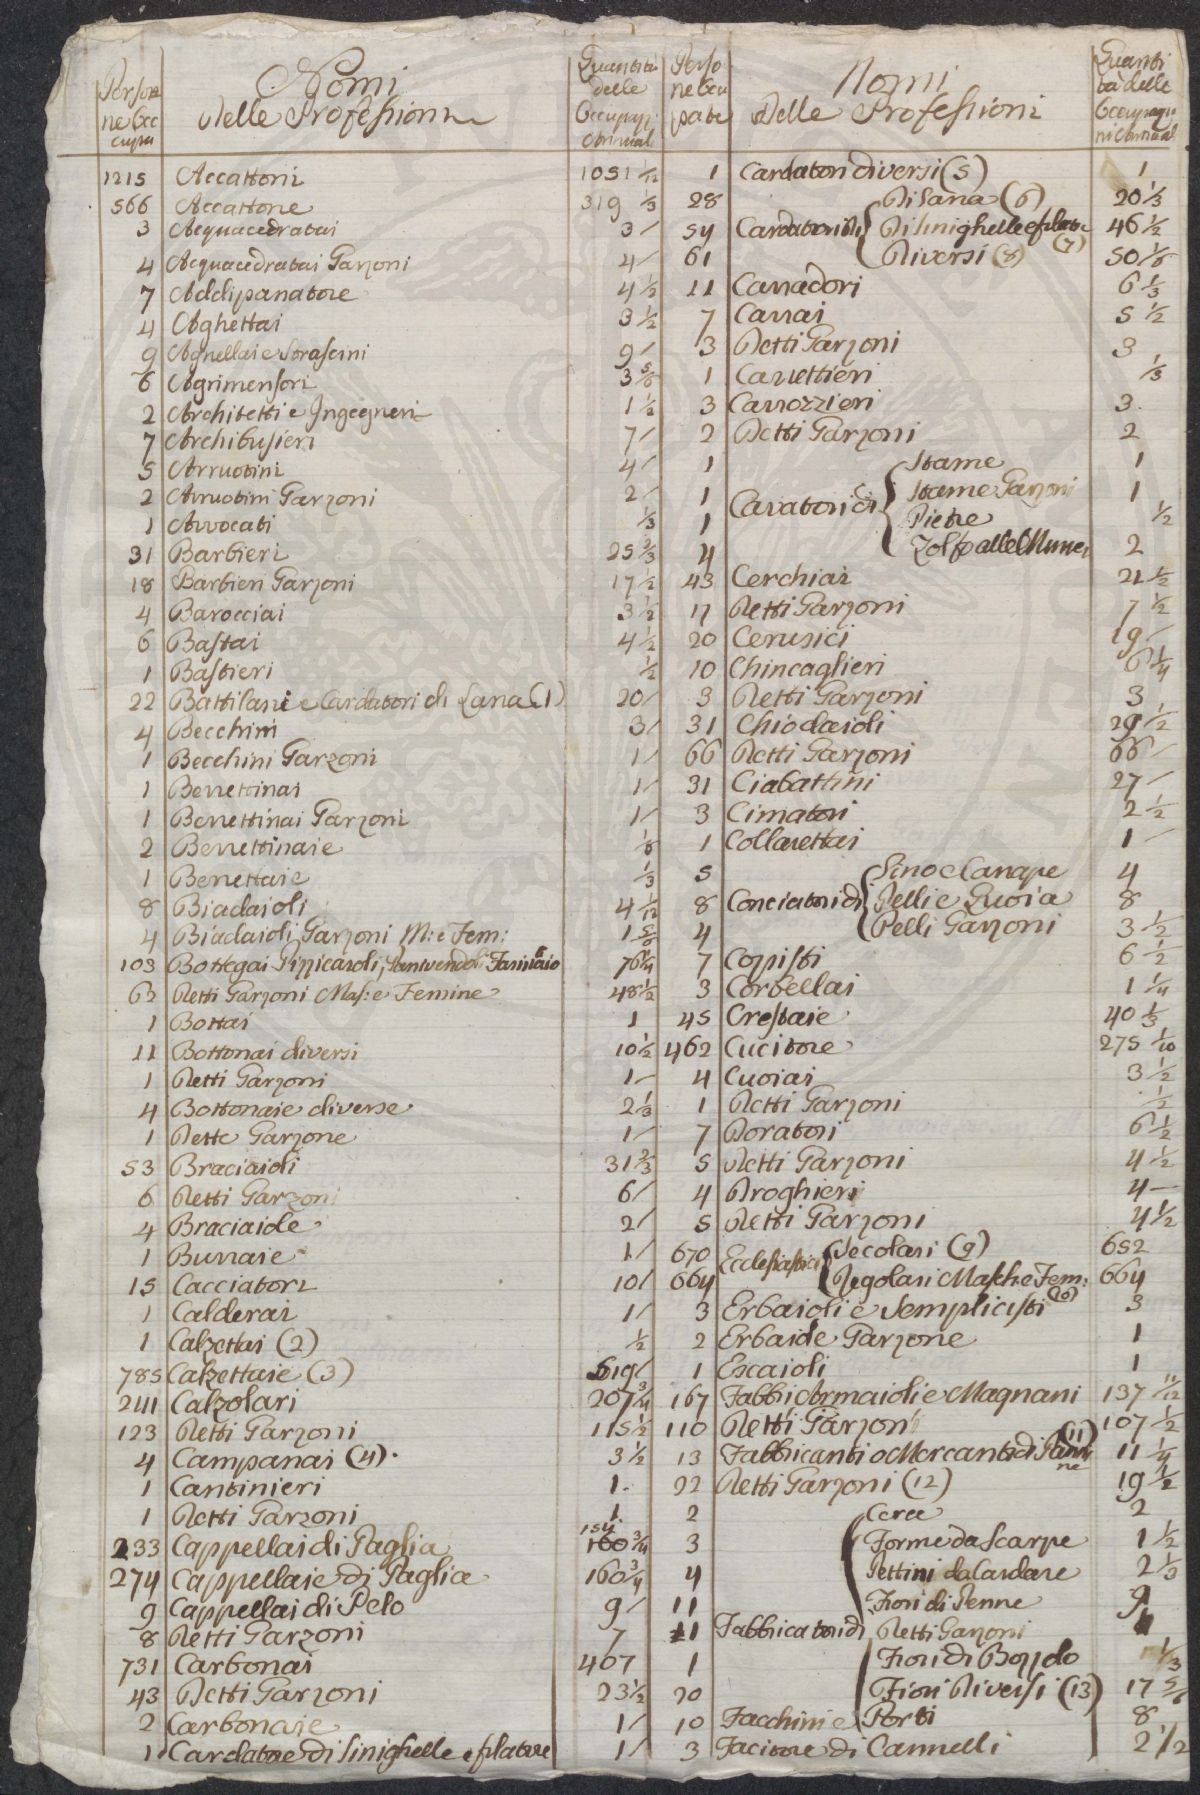 Persone Occupa
Nomi delle Professioni
Quantità delle Occupazioni Annuali
Persone Occupate
Nomi Delle Professioni
Quantità delle Occupazioni Annuali
1215 Accattoni 1051 1/12
566 Accattone 319 1/3
3 Acquacedratai 3/
4 Acquacedratai Garzoni 4/
7 Addipanatore 4 1/2
4 Aghettai 3 1/2
9 Agnellai e Sorascini 9/
6 Agrimensori 3 5/6
2 Architetti e Ingegneri 1 1/2
7 Archibusieri 7/
5 Arruotini 4/
2 Arruotini Garzoni 2/
1 Avvocati 1/3
31 Barbieri 25 2/3
18 Barbieri Garzoni 17 1/2
4 Barocciai 3 1/2
6 Bastai 4 1/2
1 Bastieri 1/2
22 Battilani e Cardatori di Lana (1) 20/
4 Becchini 3/
1 Becchini Garzoni 1/
1 Berrettinai 1/
1 Berrettinai Garzoni 1/
2 Berrettinaie 1/6
1 Berrettaie 1/3
8 Biadaioli 4 1/12
4 Biadaioli Garzoni M: e Fem: 1 5/6
103 Bottegai Pizzicaroli, Panivendoli Farinaio 76 3/4
62 Detti Garzoni Mas: e Femine 48 1/2
1 Bottai 1
11 Bottonai diversi 10 1/2
1 Detti Garzoni 1-
4 Bottonaie diverse 2 1/3
1 Dette Garzone 1/
53 Braciaioli 31 2/3
6 Detti Garzoni 6/
4 Braciaiole 2/
1 Burraie 1/
15 Cacciatori 10/
1 Calderai 1/
1 Calzettai (2) 1/2
785 Calzettaie (3) 619/
241 Calzolari 207 3/4
123 Detti Garzoni 115 1/2
4 Campanai (4). 3 1/2
1 Cantinieri 1.
1 Detti Garzoni 1.
233 Cappellai di Paglia 154. 160 3/4
274 Cappellaie di Paglia 160 3/4
9 Cappellai di Pelo 9/
8 Detti Garzoni 7
731 Carbonai 407
43 Detti Garzoni 23 1/2
2 Carbonaie 1/
1 Cardatore di Sinighelle e filatore 1/
1 Cardatori diversi (5) 1
28 Di Lana (6) 20 1/3
54 Cardatori Di Di Sinighelle e filatu (7) 46 1/2
61 Diversi (8) 50 1/6
11 Carradori 6 1/3
7 Carrai 5 1/2
3 Detti Garzoni 3
1 Carrettieri 1/3
3 Carrozzieri 3.
2 Detti Garzoni 2
1 Stame 1
1 Cavatori di Stame Garzoni 1
1 Pietre 1/2
4 Zolfo alle Mine 2
43 Cerchiai 21 1/2
17 Detti Garzoni 7 1/2
20 Cerusici 19 -
10 Chincaglieri 6 1/4
3 Detti Garzoni 3
31 Chiodaioli 29 1/2
66 Detti Garzoni 66 /
31 Ciabattini 27 /
3 Cimatori 2 1/2
1 Collarettai 1 -
5 Lino e Canape 4
8 Conciatori di Pelli e Quoia 8
4 Pelli Garzoni 3 1/2
7 Copisti 6 1/2
3 Corbellai 1 1/4
45 Crestaie 40 1/3
462 Cucitore 275 1/10
4 Cuoiai 3 1/2
1 Detti Garzoni 1/2
7 Doratori 6 1/2
5 Detti Garzoni 4 1/2
4 Droghieri 4 -
5 Detti Garzoni 4 1/2
670 Ecclesiastici Secolari (9) 652
664 Regolari Masche Fem: (10) 664
3 Erbaioli e Semplicisti 3
2 Erbaiole Garzone 1
1 Escaioli 1
167 Fabbri Armaioli e Magnani 137 11/12
110 Detti Garzoni 107 1/2
13 Fabbricanti o Mercanti di Panni ne (11) 11 1/4
22 Detti Garzoni (12) 19 1/2
2 Cera 2
3 Forme da Scarpe 1 1/2
4 Pettini da Cardare 2 1/3
11 Fiori di Penne 9
11 Fabbricatori di Detti Garzoni
1 Fiori di Bozzolo 1/3
20 Fiori Diversi (13) 17 5/6
10 Facchini e Porti 8
3 Facitore di Cannelli 2 1/2